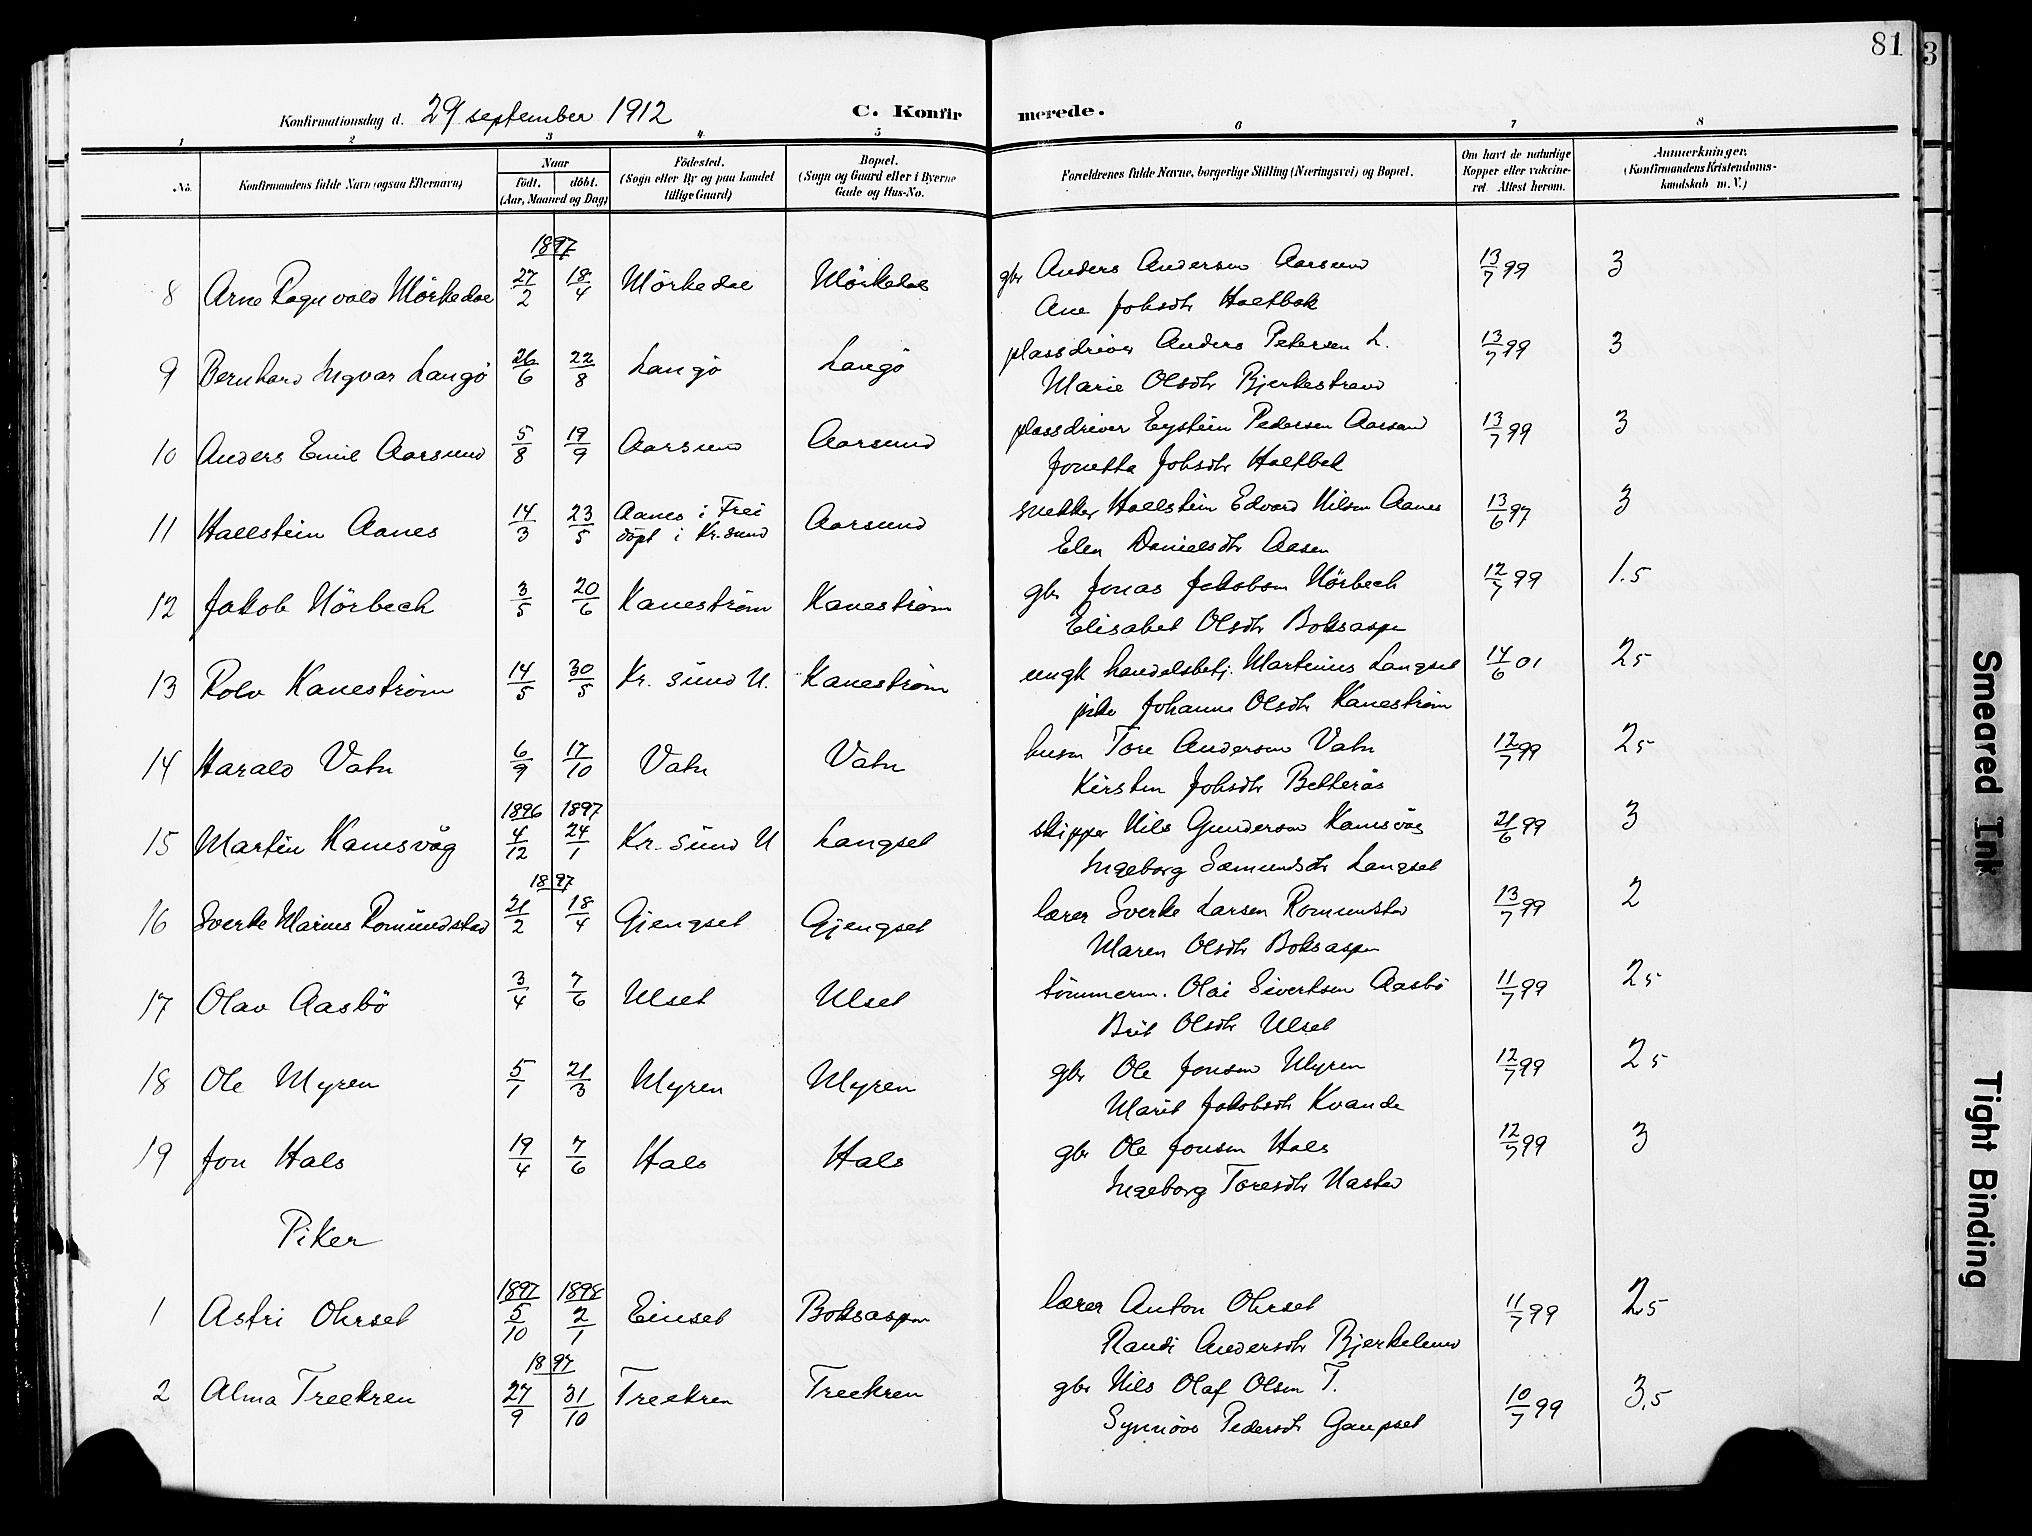 81
3
Konfirmationsdag d. 29 september 1912 C. Konfir merede.
1 2 3 4 5 6 7 8
No. Konfirmandens fulde Navn (ogsaa Efternavn) Naar født. døbt. (Aar, Maaned og Dag) Fødested. (Sogn eller By og paa Landet tillige Gaard) Bopæl. (Sogn og Gaard eller i Byerne Gade og Hus-No. Forældrenes fulde Navne, borgerlige Stilling (Næringsvei) og Bopæl. Om havt de naturlige Kopper eller vakcineret. Attest herom. Anmerkninger, (Konfirmandens Kristendomskundskab m. V.)
1897
8 Arne Ragnvald Mörkedal 27/2 18/4 Mörkedal Mörkedal gbr Anders Andersen Aarsund 13/7 99 3
Ane Johsdtr Holtbak
9 Bernhard Ingvar Langö 26/6 22/8 Langö Langö plassdriver Anders Petersen L. 13/7 99 3
Marie Olsdtr Bjerkestrand
10 Anders Emil Aarsund 5/8 19/9 Aarsund Aarsund plassdriver Eystein Pedersen Aarsund 13/7 99 3
Jonetta Johsdtr Holtbak
11 Hallstein Aanes 14/3 23/5 Aanes i Frei döpt i Kr.sund Aarsund snekker Hallstein Edvard Nilsen Aanes 13/6 97 3
Elen Danielsdtr Aasen
12 Jakob Nörbech 3/5 20/6 Kaneström Kaneström gbr Jonas Jakobsen Nörbech 12/7 99 1.5
Elisabet Olsdtr Boksaspn
13 Rolv Kaneström 14/5 30/5 Kr. sund N. Kaneström ungk handelsbetj. Martinus Langset 14/6 01 25
pike Johanna Olsdtr Kaneström
14 Harald Vatn 6/9 17/10 Vatn Vatn husm Tore Andersen Vatn 12/7 99 25
Kirsten Johsdtr Betteräs
1896 1897
15 Martin Kamsvåg 4/12 24/1 Kr. sund N Langset skipper Nils Gundersen Kamsvåg 21/6 99 3
Ingeborg Sæmundsdtr Langset
1897
16 Sverke Marius Romundstad 21/2 18/4 Gjengset Gjengset lærer Sverke Larsen Romundstad 13/7 99 2
Maren Olsdtr Boksaspn
17 Olav Aasbö 3/4 7/6 Ulset Ulset tömmerm. Olai Sivertsen Aasbö 11/7 99 25
Brit Olsdtr Ulset
18 Ole Myren 5/1 21/3 Myren Myren gbr Ole Jonsen Myren 12/7 99 25
Marit Jakobsdtr Kvande
19 Jon Hals 19/4 7/6 Hals Hals gbr Ole Jonsen Hals 12/7 99 3
Ingeborg Toresdtr Nastad
Piker
1897 1898
1 Astri Ohrset 5/10 2/1 Einset Boksaspn lærer Anton Ohrset 11/7 99 25
Randi Andersdtr Bjerkelund
1897
2 Alma Treekren 27/9 31/10 Treekren Treekren gbr Nils Olaf Olsen T. 10/7 99 3,5
Synnöve Pedersdtr Gaupset
Smeared Ink
Tight Binding